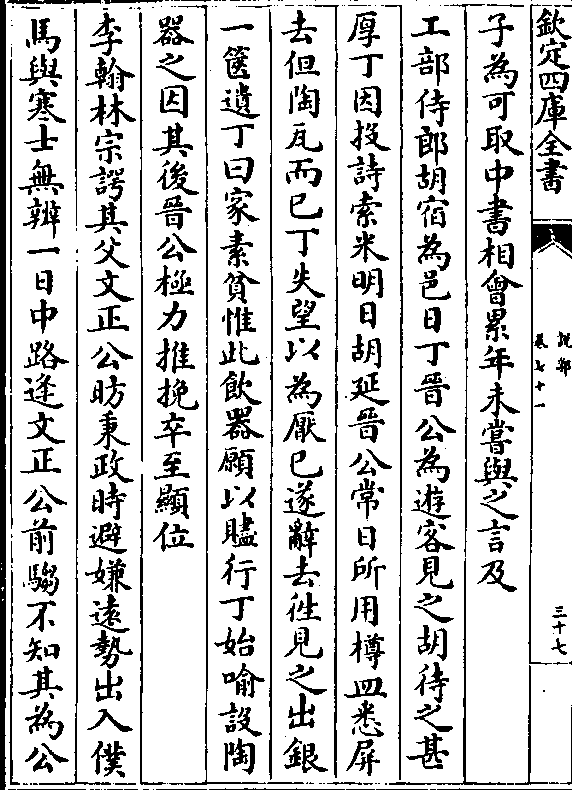 欽定四庫全書
說郛
卷七十一
三十七
子為可取中書相會累年未嘗與之言及
工部侍郎胡宿為邑日丁晉公為遊客見之胡待之甚
厚丁因投詩索米明日胡延晉公常日所用樽皿悉屏
去但陶瓦而已丁失望以為厭已遂辭去徃見之出銀
一篋遺丁曰家素貧惟此飲器願以贐行丁始喻設陶
器之因其後晉公極力推挽卒至顯位
李翰林宗諤其父文正公昉秉政時避嫌遠勢出入僕
馬與寒士無辨一日中路逢文正公前騶不知其為公